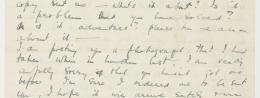 copy sent me — what's it about? Is it
a problem that you have solved?
Or is it adventure? Please let me know
about it.
I am posting you a photograph, that I had
taken when in London last. I am really
awfully sorry that you haven't got one
before. I'm sure I ordered one to be sent
you. I hope it will arrive safely